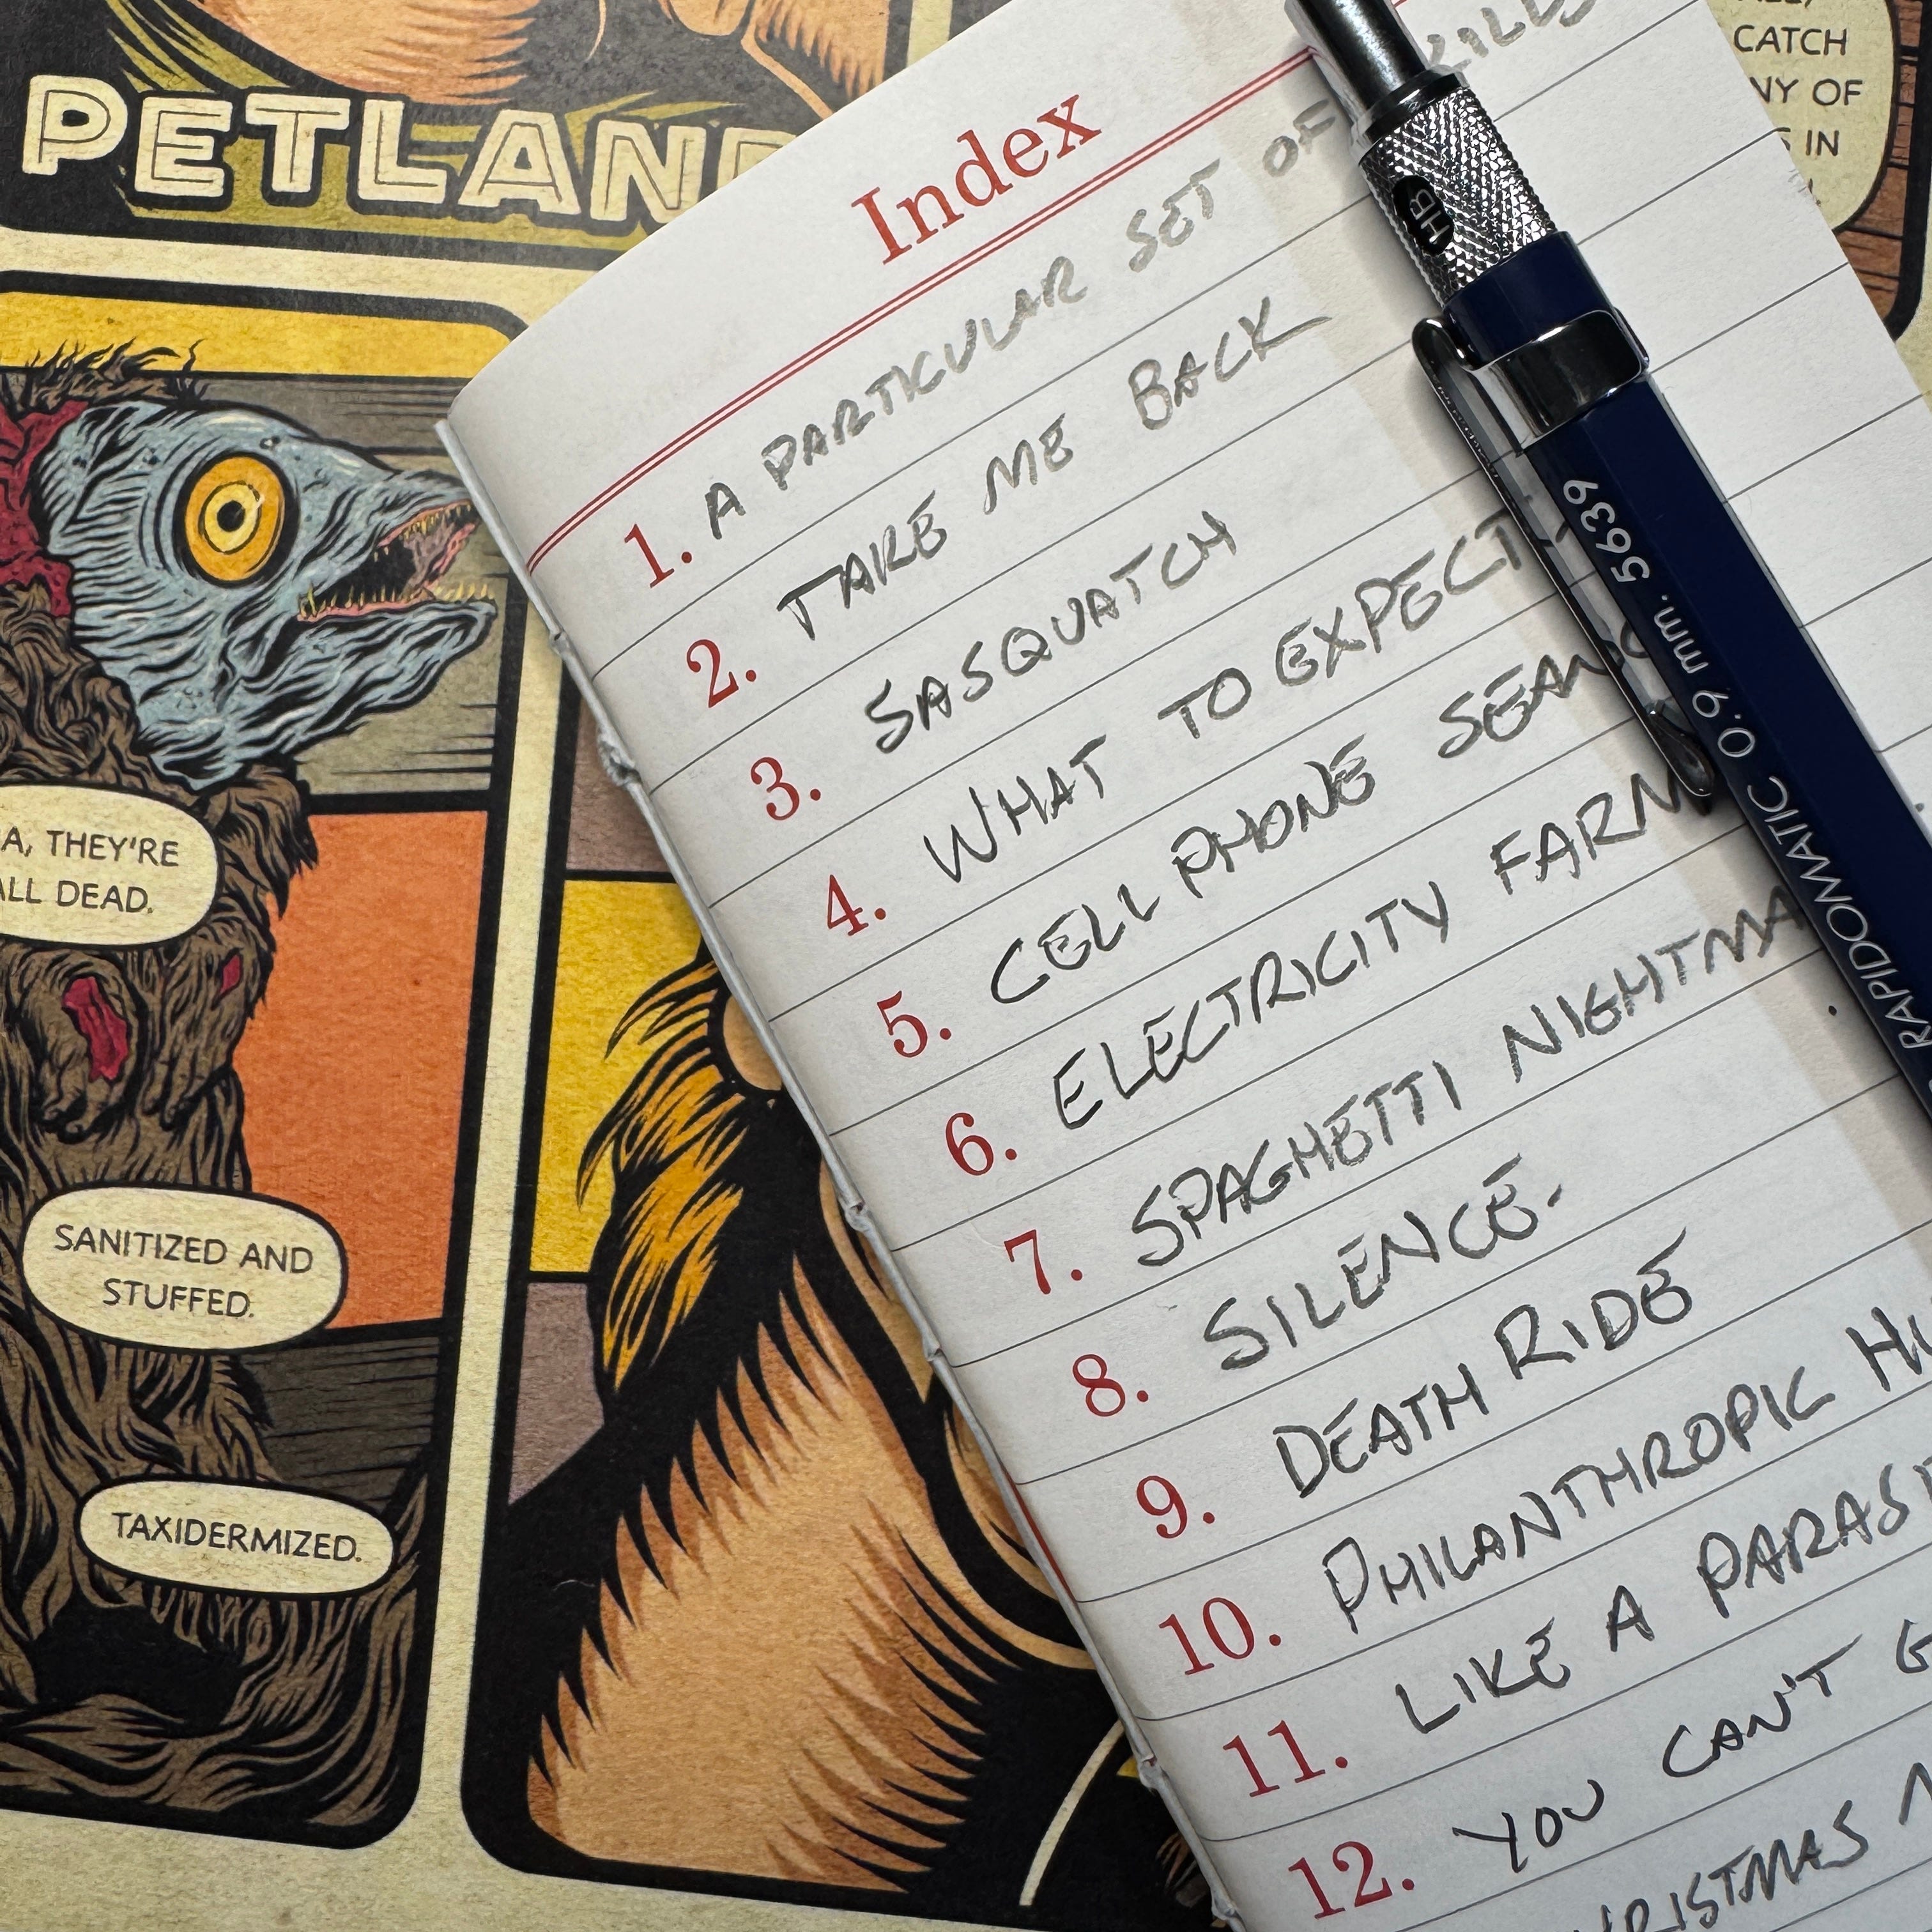 PETLAND
CATCH
NY OF
IN
A, THEY'RE
ALL DEAD.
SANITIZED AND
STUFFED.
TAXIDERMIZED.
Index
1. A PARTICULAR SET OF SKILLS
2. TAKE ME BACK
3. SASQUATCH
4. WHAT TO EXPECT
5. CELL PHONE
6. ELECTRICITY FARM
7. SPAGHETTI NIGHTMA
8. SILENCE.
9. DEATH RIDE
10. PHILANTHROPIC HU
11. LIKE A PARASI
12. YOU CAN'T G
HRISTMAS
HB
RAPIDOMATIC 0,9 mm. 5639